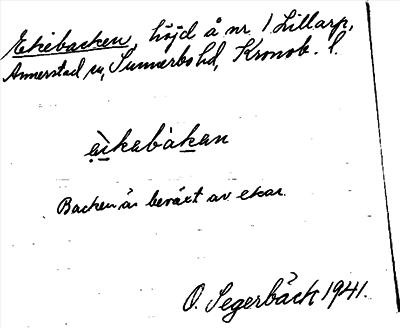 Ekebacken, höjd å nr 1 Lillarp,
Annerstad sn, Sunnerbo hd, Kronob. l.
èkebàken
Backen är beväxt av ekar.
O. Segerbäck 1941.